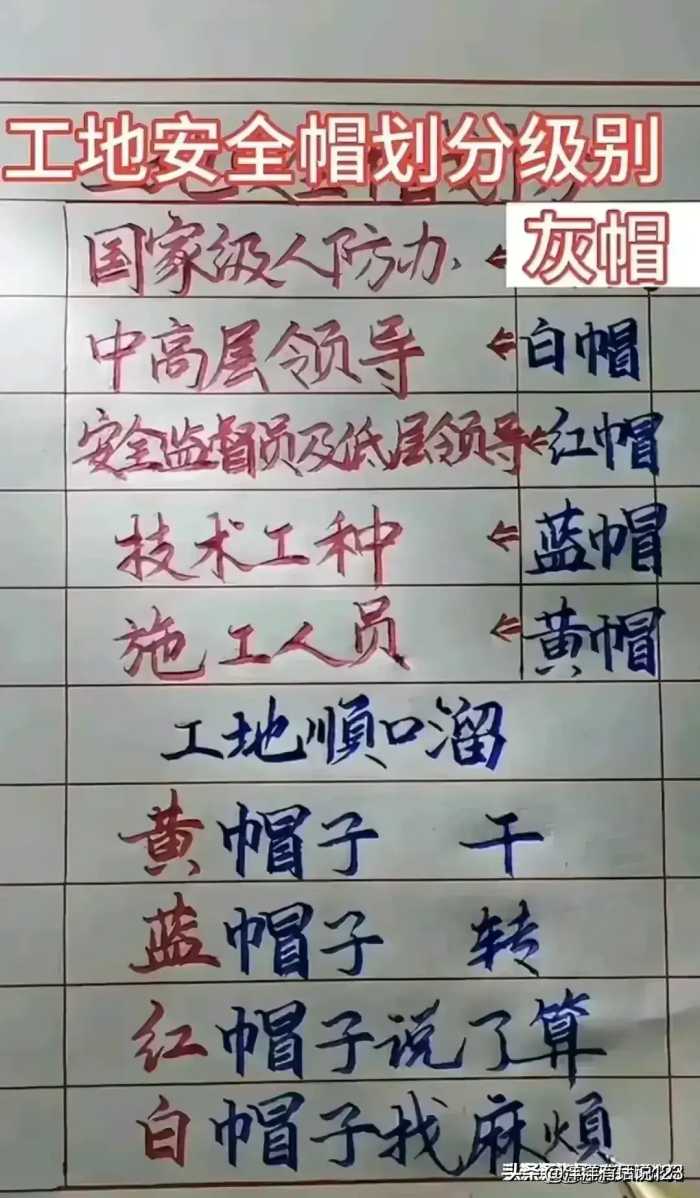 工地安全帽划分级别
国家级人防办 ← 灰帽
中高层领导 ← 白帽
安全监督员及低层领导 ← 红帽
技术工种 ← 蓝帽
施工人员 ← 黄帽
工地顺口溜
黄帽子 干
蓝帽子 转
红帽子说了算
白帽子找麻烦